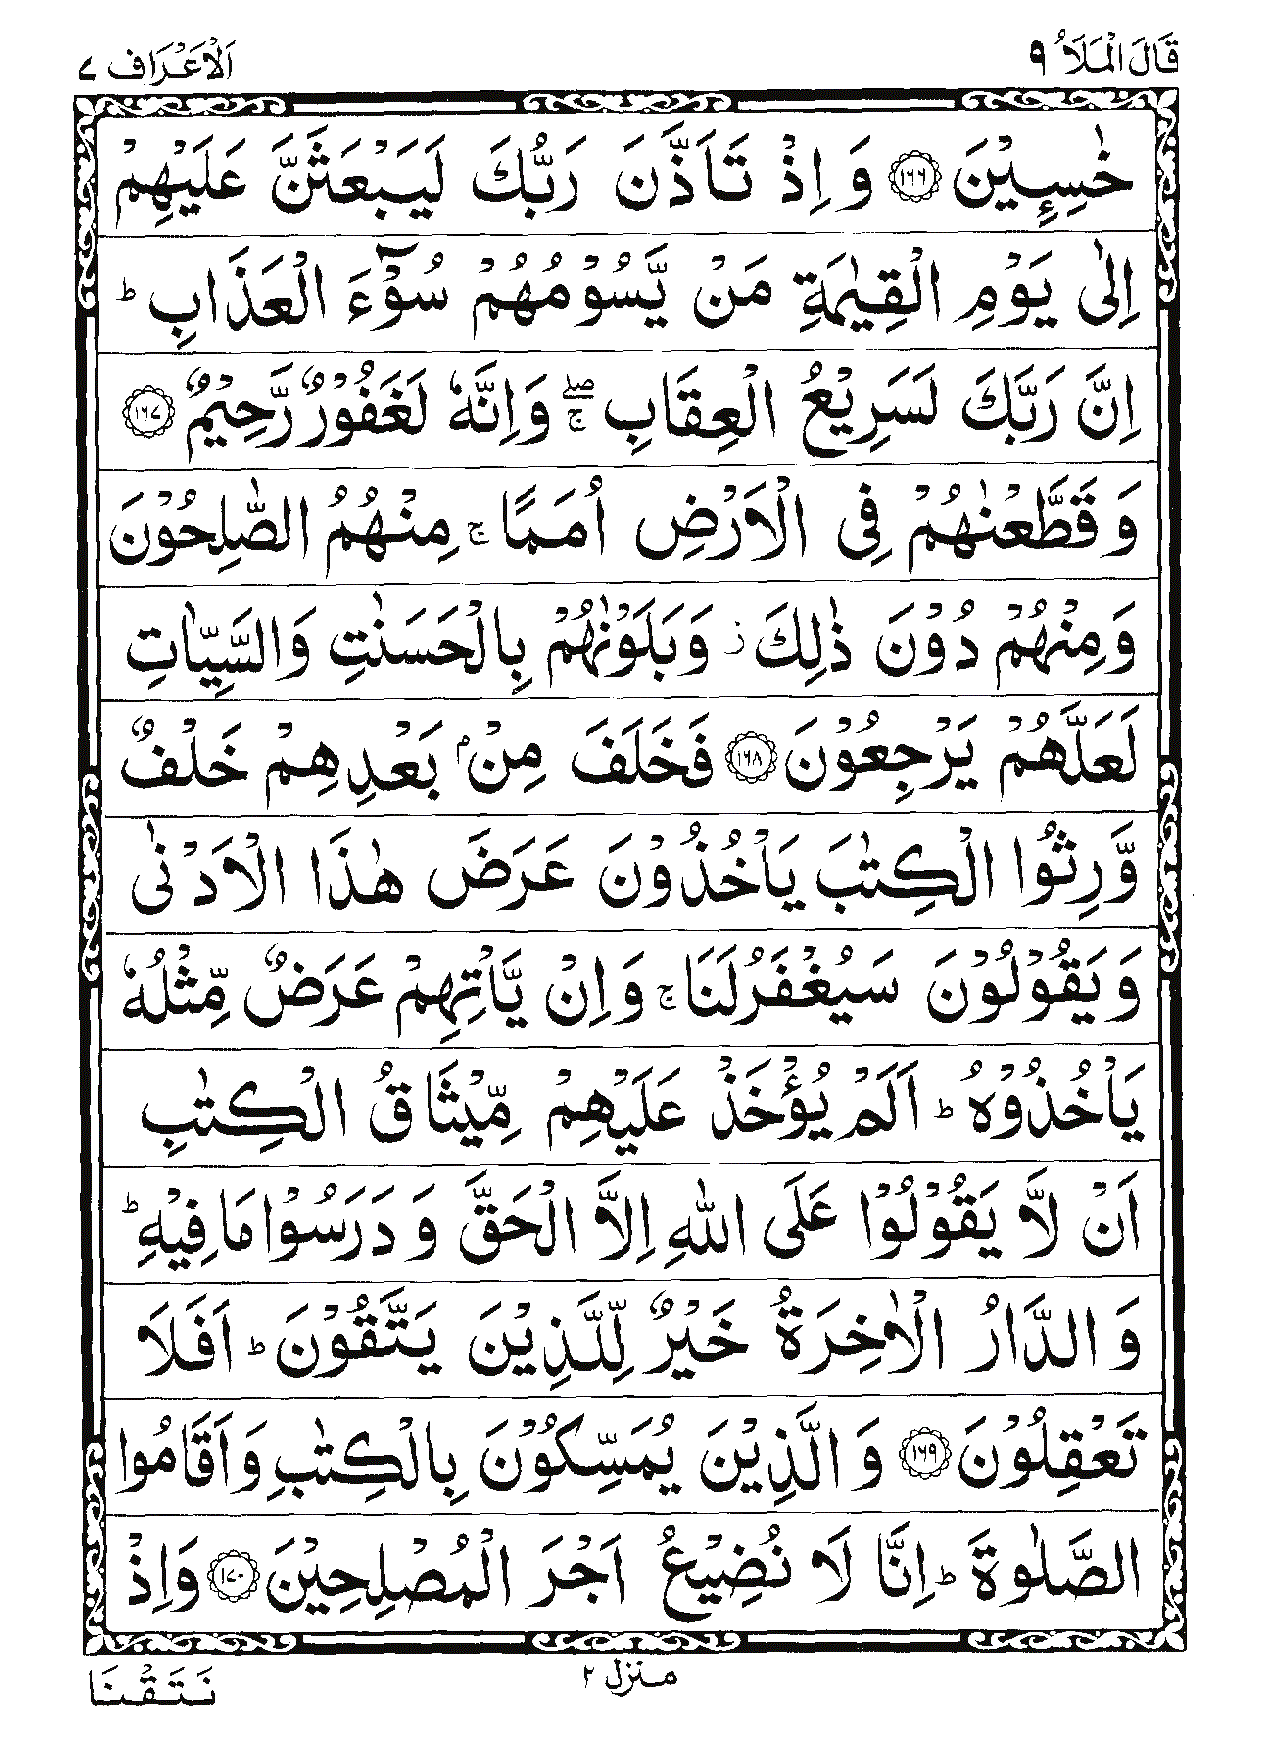 قَالَ الْمَلَاُ ٩
اَلْاَعْرَاف ٧
خٰسِـِٕيْنَ ۝١٦٦ وَ اِذْ تَاَذَّنَ رَبُّكَ لَيَبْعَثَنَّ عَلَيْهِمْ
اِلٰى يَوْمِ الْقِيٰمَةِ مَنْ يَّسُوْمُهُمْ سُوْٓءَ الْعَذَابِ ؕ
اِنَّ رَبَّكَ لَسَرِيْعُ الْعِقَابِ ۖۚ وَاِنَّهٗ لَغَفُوْرٌ رَّحِيْمٌ ۝١٦٧
وَ قَطَّعْنٰهُمْ فِى الْاَرْضِ اُمَمًا ۚ مِنْهُمُ الصّٰلِحُوْنَ
وَمِنْهُمْ دُوْنَ ذٰلِكَ ز وَبَلَوْنٰهُمْ بِالْحَسَنٰتِ وَالسَّيِّاٰتِ
لَعَلَّهُمْ يَرْجِعُوْنَ ۝١٦٨ فَخَلَفَ مِنْۢ بَعْدِهِمْ خَلْفٌ
وَّرِثُوا الْكِتٰبَ يَاْخُذُوْنَ عَرَضَ هٰذَا الْاَدْنٰى
وَيَقُوْلُوْنَ سَيُغْفَرُ لَنَا ۚ وَاِنْ يَّاْتِهِمْ عَرَضٌ مِّثْلُهٗ
يَاْخُذُوْهُ ؕ اَلَمْ يُؤْخَذْ عَلَيْهِمْ مِّيْثَاقُ الْكِتٰبِ
اَنْ لَّا يَقُوْلُوْا عَلَى اللّٰهِ اِلَّا الْحَقَّ وَ دَرَسُوْا مَا فِيْهِ ؕ
وَ الدَّارُ الْاٰخِرَةُ خَيْرٌ لِّلَّذِيْنَ يَتَّقُوْنَ ؕ اَفَلَا
تَعْقِلُوْنَ ۝١٦٩ وَ الَّذِيْنَ يُمَسِّكُوْنَ بِالْكِتٰبِ وَاَقَامُوا
الصَّلٰوةَ ؕ اِنَّا لَا نُضِيْعُ اَجْرَ الْمُصْلِحِيْنَ ۝١٧٠ وَاِذْ
منزل ٢
نَتَقْنَا